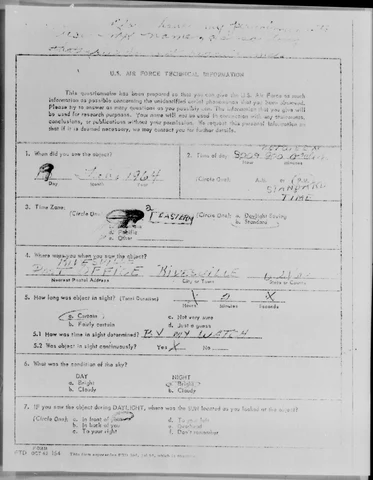 U.S. AIR FORCE TECHNICAL INFORMATION
This questionnaire has been prepared so that you can give the U.S. Air Force as much
information as possible concerning the unidentified aerial phenomenon that you have observed.
Please try to answer as many questions as you possibly can. The information that you give will
be used for research purposes. Your name will not be used in connection with any statements,
conclusions, or publications without your permission. We request this personal information so
that if it is deemed necessary, we may contact you for further details.
1. When did you see the object?
1964
Day Month Year
2. Time of day:
Hour Minutes
(Circle One): A.M. or P.M.
STANDARD
TIME
3. Time Zone:
(Circle One): a. EASTERN
c. Pacific
d. Other
(Circle One): a. Daylight Saving
b. Standard
4. Where were you when you saw the object?
RIVESVILLE
POST OFFICE RIVESVILLE
Nearest Postal Address City or Town State or County
5. How long was object in sight? (Total Duration) X
Hours Minutes Seconds
a. Certain
b. Fairly certain
c. Not very sure
d. Just a guess
5.1 How was time in sight determined? BY MY WATCH
5.2 Was object in sight continuously? Yes X No
6. What was the condition of the sky?
DAY NIGHT
a. Bright a. Bright
b. Cloudy b. Cloudy
7. IF you saw the object during DAYLIGHT, where was the SUN located as you looked at the object?
(Circle One): a. In front of you d. To your left
b. In back of you e. Overhead
c. To your right f. Don't remember
FORM
FTD OCT 62 164